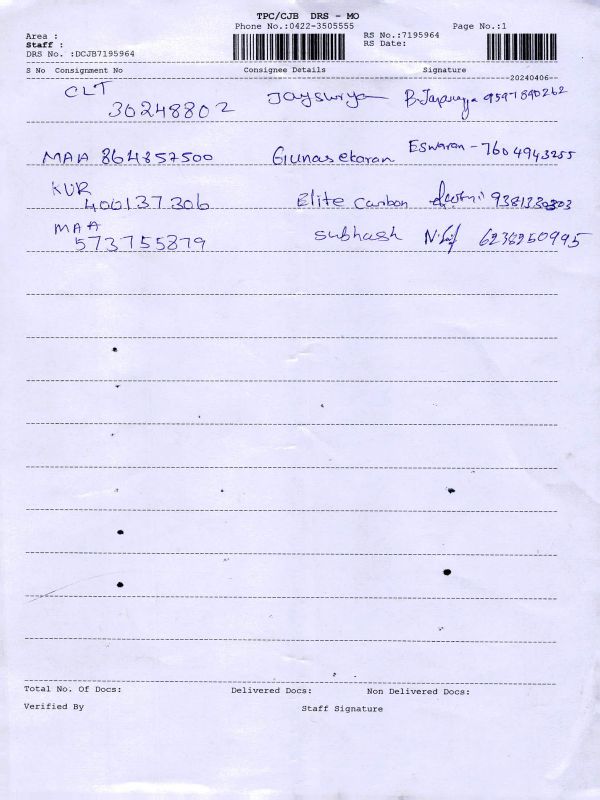 TPC/CJB DRS - MO
Phone No.:0422-3505555 Page No.:1
Area :
Staff :
RS No.:7195964
RS Date:
DRS No. :DCJB7195964
S No Consignment No Consignee Details Signature
20240406
CLT
30248802 Jaysurya 9597890262
MAA 864857500 Gunasekaran Eswaran - 7604943255
KUR
400137306 Elite Carbon
MAA
573755879 Subhash 6238250995
Total No. Of Docs: Delivered Docs: Non Delivered Docs:
Verified By Staff Signature